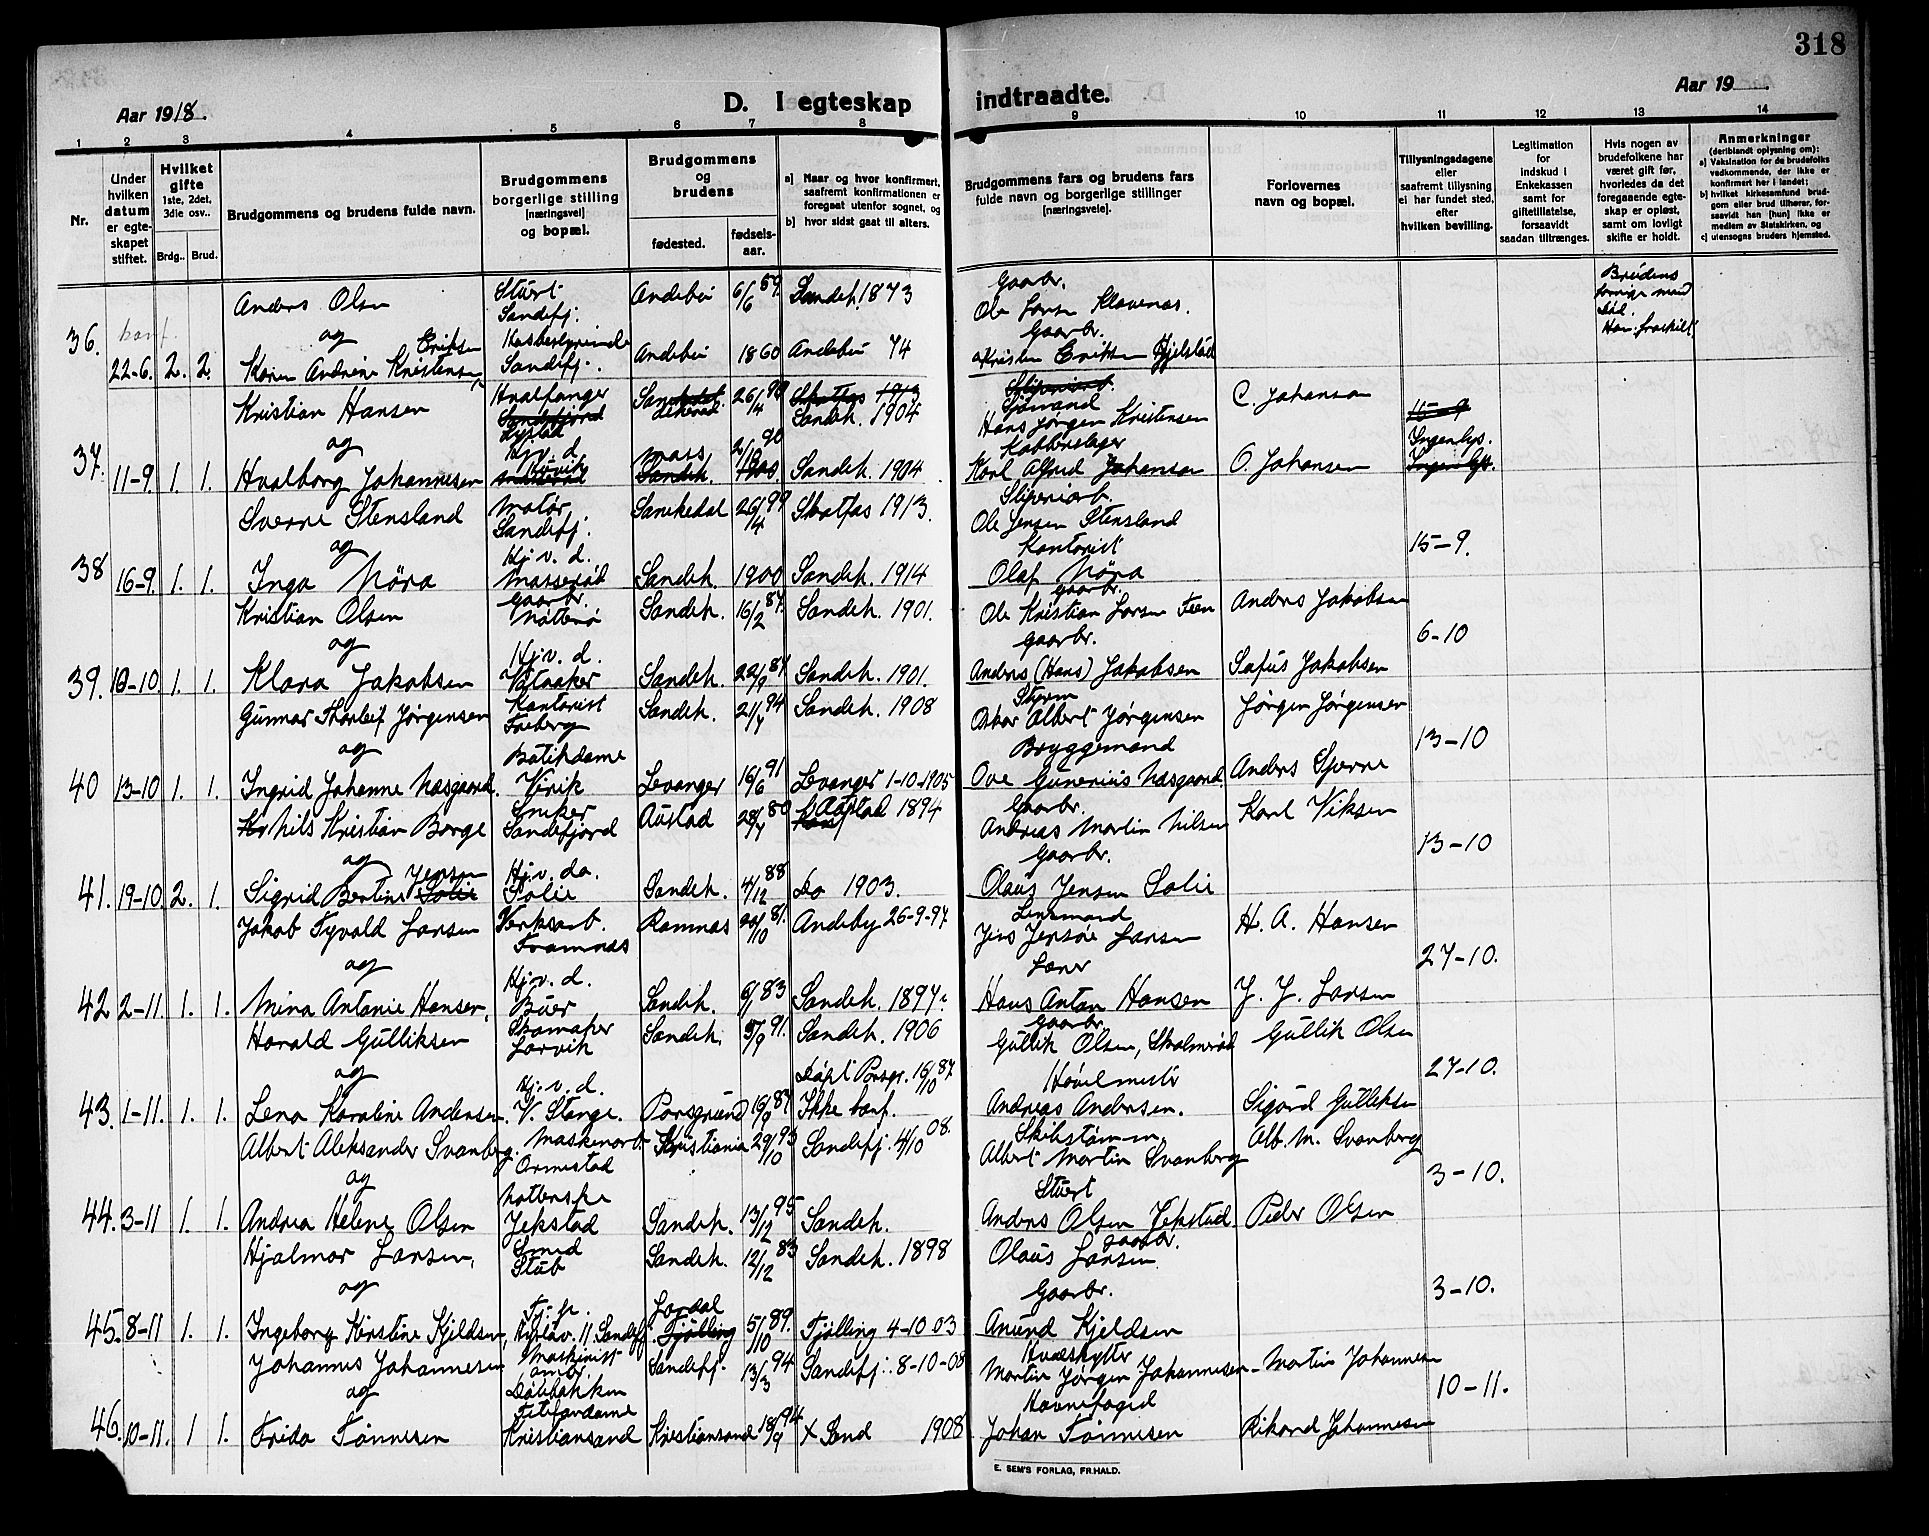 318
Aar 1918.
D. I egteskap indtraadte.
Aar 19
1 2 3 4 5 6 7 8 9 10 11 12 13 14
Nr.
Under hvilken datum er egteskapet stiftet.
Hvilket gifte 1ste, 2det, 3die osv..
Brdg.. Brud.
Brudgommens og brudens fulde navn.
Brudgommens borgerlige stilling [næringsvei] og bopæl.
Brudgommens og brudens
fødested.
fødselsaar.
a) Naar og hvor konfirmert, saafremt konfirmationen er foregaat utenfor sognet, og
b) hvor sidst gaat til alters.
Brudgommens fars og brudens fars fulde navn og borgerlige stillinger [næringsveie].
Forlovernes navn og bopæl.
Tillysningsdagene eller saafremt tillysning ei har fundet sted, efter hvilken bevilling.
Legitimation for indskud i Enkekassen samt for giftetillatelse, forsaavidt saadan tiltrænges.
Hvis nogen av brudefolkene har været gift før, hvorledes da det foregaaende egteskap er opløst, samt om lovligt skifte er holdt.
Anmerkninger
(deriblandt oplysning om):
a) Vaksination for de brudefolks vedkommende, der ikke er konfirmert her i landet;
b) hvilket kirkesamfund brudgom eller brud tilhører, forsaavidt han [hun] ikke er medlem av Statskirken, og
c) utensogns bruders hjemsted.
Anders Olsen Stuert Sandefj. Andebu 6/6 59 Sandeh. 1873 Gaarbr. Ole Larsen Klavenæs. Brudens forrige mand død.
36. og
22-6. 2. 2. Karen Andrine Kristensen Eriksen Sandefj. Andebu 1860 Andebu 74 Gaarbr. Kristen Eriksen Gjelstad
Kristian Hansen Hvalfanger Sandefjord 26/4 Skotfos 1913 Sandeh. 1904 Sliperiarb. Sjømand Hans Jørgen Kristensen C. Johansen 15-9 Ingen lys.
37. og
11-9. 1. 1. Hvalborg Johannesen Hj. v. d. Sandeh. 1900 Sandeh. 1904 Karl Alfred Johansen O. Johansen Ingen lys.
Sverre Stensland Motør. Sandefj. Sanekedal 26/4 99 Skotfos 1913. Sliperiarb. Ole Jensen Stensland
38 og 15-9.
16-9. 1. 1. Inga Møra Hj. v. d. Sandeh. 1900 Sandeh. 1914 Kontorist Olaf Møra
Kristian Olsen Gaarbr. Nøtterø Sandeh. 16/2 87. Sandeh. 1901. Gaarbr. Ole Kristian Larsen Feen Anders Jakobsen
og 6-10
39. 10-10. 1. 1. Klara Jakobsen Hj. v. d. Sandeh. 22/9 Sandeh. 1901. Gaarbr. Anders (Hans) Jakobsen Sofus Jakobsen
Gunnar Thorleif Jørgensen Kontorist Freberg Sandeh. 21/7 94 Sandeh. 1908 Oskar Albert Jørgensen Jørgen Jørgensen
og 13-10
40 13-10 1. 1. Ingrid Johanne Næsgaard. Butikdame Virik Levanger 16/6 91 Levanger 1-10-1905 Bryggemand Ove Gunerius Næsgaard Anders Sperre
Nils Kristian Borge Snker Sandefjord Austad 28/7 80 Austad 1894 Gaarbr. Andreas Martin Nilsen Karl Viksen
og 13-10
41. 19-10. 2. 1. Sigrid Bertine Solie Jensen Hj. v. do. Solie Sandeh. 4/12 88 Do 1903. Gaarbr. Olaus Jensen Solie
Jakob Tyvold Larsen Verksarb. Framnæs Ramnæs 20/10 81. Andeby 26-9-97. Lensmand Jens Jensøie Larsen H. A. Hansen
og 27-10.
42 2-11. 1. 1. Mina Antonie Hansen, Hj. v. d. Buer Sandeh. 83 Sandeh. 1897. Hans Anton Hansen J. J. Larsen
Harald Gulliksen Skomaker Larvik Sandeh. 5/9 91. Sandeh. 1906 Gaarbr. Gullik Olsen, Skolmerød Gullik Olsen
og Døpt Porsgr. 16/10 87. 27-10.
43. 1-11. 1. 1. Lena Karoline Andersen. Hj. v. d. V. Stange. Porsgrund 16/9 87 Ikke konf. Andreas Andersen. Sigurd Gulliksen
Albert Aleksander Svanberg. Maskinarb. Ormestad Kristiania 29/10 93 Sandefj. 4/10 08. Skibstømm. Albert Martin Svanberg Alb. M. Svanberg
og 3-10.
44. 3-11 1. 1. Andrea Helene Olsen Jekstad Sandeh. 13/12 95 Sandeh. Stuert Anders Olsen Jekstad Peder Olsen
Hjalmar Larsen, Smed Stub Sandeh. 12/12 83 Sandeh. 1898 Gaarbr. Olaus Larsen
og 3-10.
45. 8-11 1. 1. Ingeborg Kirstine Kjeldsen, Sandefj. Lardal Tjølling 5/10 89. Tjølling 4-10 03 Gaarbr. Anund Kjeldsen
Johannes Johannesen Maskinist Sandefj. 13/3 94 Sandefj. 8-10-08 Hvalskytter Martin Jørgen Johannesen Martin Johannesen
og 10-11.
46. 10-11. 1 1. Frida Tønnesen Kristiansand Kristiansand 18/9 94 X Sand 1908 Havnefoged Johan Tønnesen Rikard Johannesen
E. SEM'S FORLAG, FR.HALD.